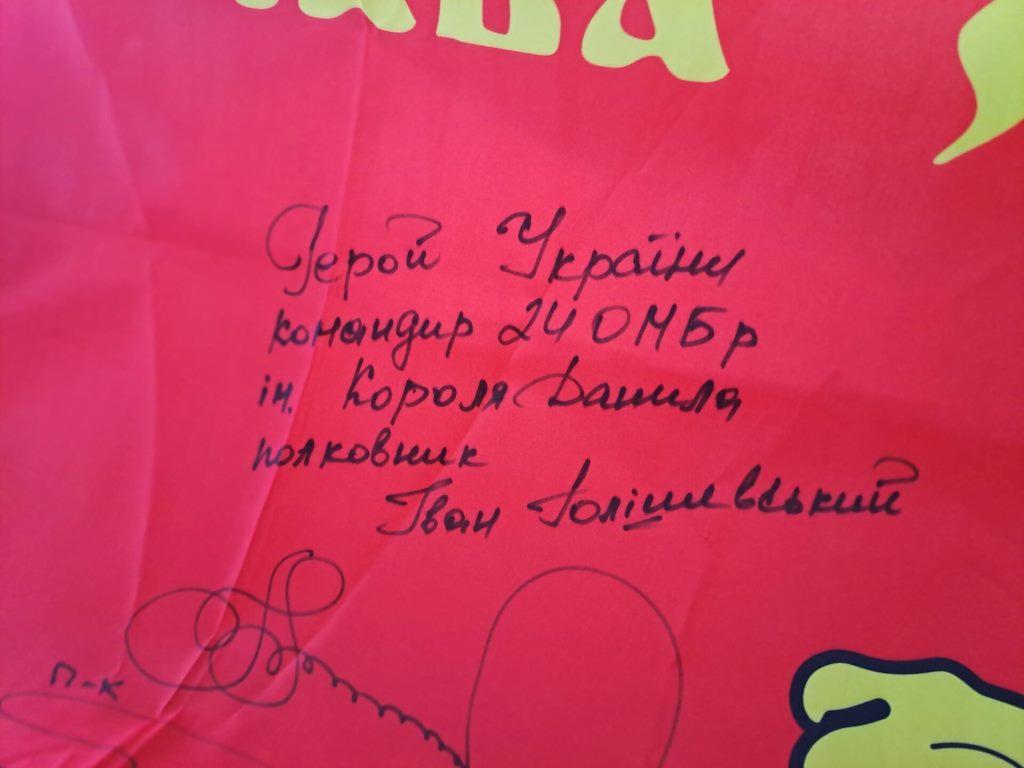 Герой України
командир 24 ОМБр
ім. Короля Данила
полковник
Іван Голішевський
п-к